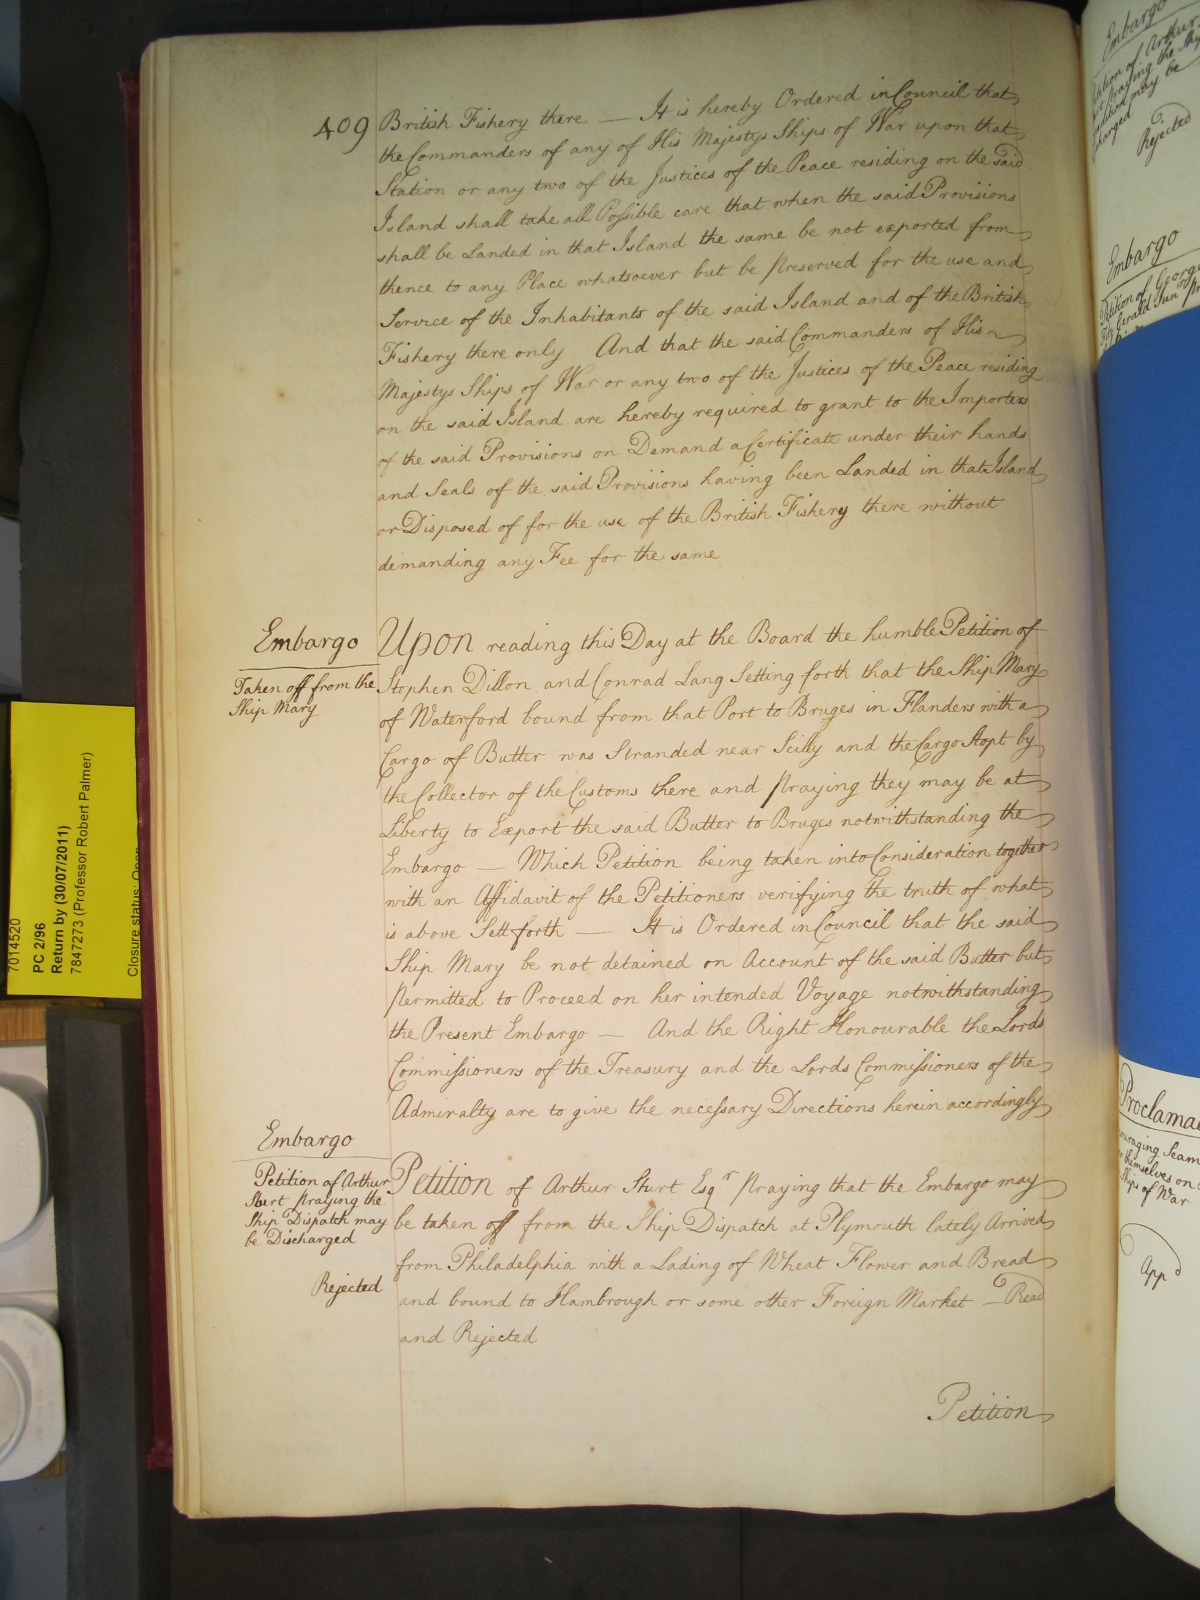 409
British Fishery there — It is hereby Ordered in Council that
the Commanders of any of His Majestys Ships of War upon that
Station or any two of the Justices of the Peace residing on the said
Island shall take all Possible care that when the said Provisions
shall be Landed in that Island the same be not exported from
thence to any Place whatsoever but be preserved for the use and
Service of the Inhabitants of the said Island and of the British
Fishery there only And that the said Commanders of His
Majestys Ships of War or any two of the Justices of the Peace residing
on the said Island are hereby required to grant to the Importers
of the said Provisions on Demand a Certificate under their hands
and Seals of the said Provisions having been Landed in that Island
or Disposed of for the use of the British Fishery there without
demanding any Fee for the same
Embargo
Taken off from the
Ship Mary
Upon reading this Day at the Board the humble Petition of
Stephen Dillon and Conrad Lang Setting forth that the Ship Mary
of Waterford bound from that Port to Bruges in Flanders with a
Cargo of Butter was Stranded near Scilly and the Cargo Stopt by
the Collector of the Customs there and praying they may be at
Liberty to Export the said Butter to Bruges notwithstanding the
Embargo — Which Petition being taken into Consideration together
with an Affidavit of the Petitioners verifying the truth of what
is above Sett forth — It is Ordered in Council that the said
Ship Mary be not detained on Account of the said Butter but
permitted to Proceed on her intended Voyage notwithstanding
the Present Embargo — And the Right Honourable the Lords
Commissioners of the Treasury and the Lords Commissioners of the
Admiralty are to give the necessary Directions herein accordingly
Embargo
Petition of Arthur
Sturt praying the
Ship Dispatch may
be Discharged
Rejected
Petition of Arthur Sturt Esqr praying that the Embargo may
be taken off from the Ship Dispatch at Plymouth lately Arrived
from Philadelphia with a Lading of Wheat Flower and Bread
and bound to Hambrough or some other Foreign Market — Read
and Rejected
Petition
7014520
PC 2/96
Return by (30/07/2011)
7847273 (Professor Robert Palmer)
Closure status: Open
Embargo
Petition of Arthur
praying the
may be
Rejected
Embargo
Petition of George
Fitz Gerald
Proclama
Seam
themselves on
Ships of War
Appd